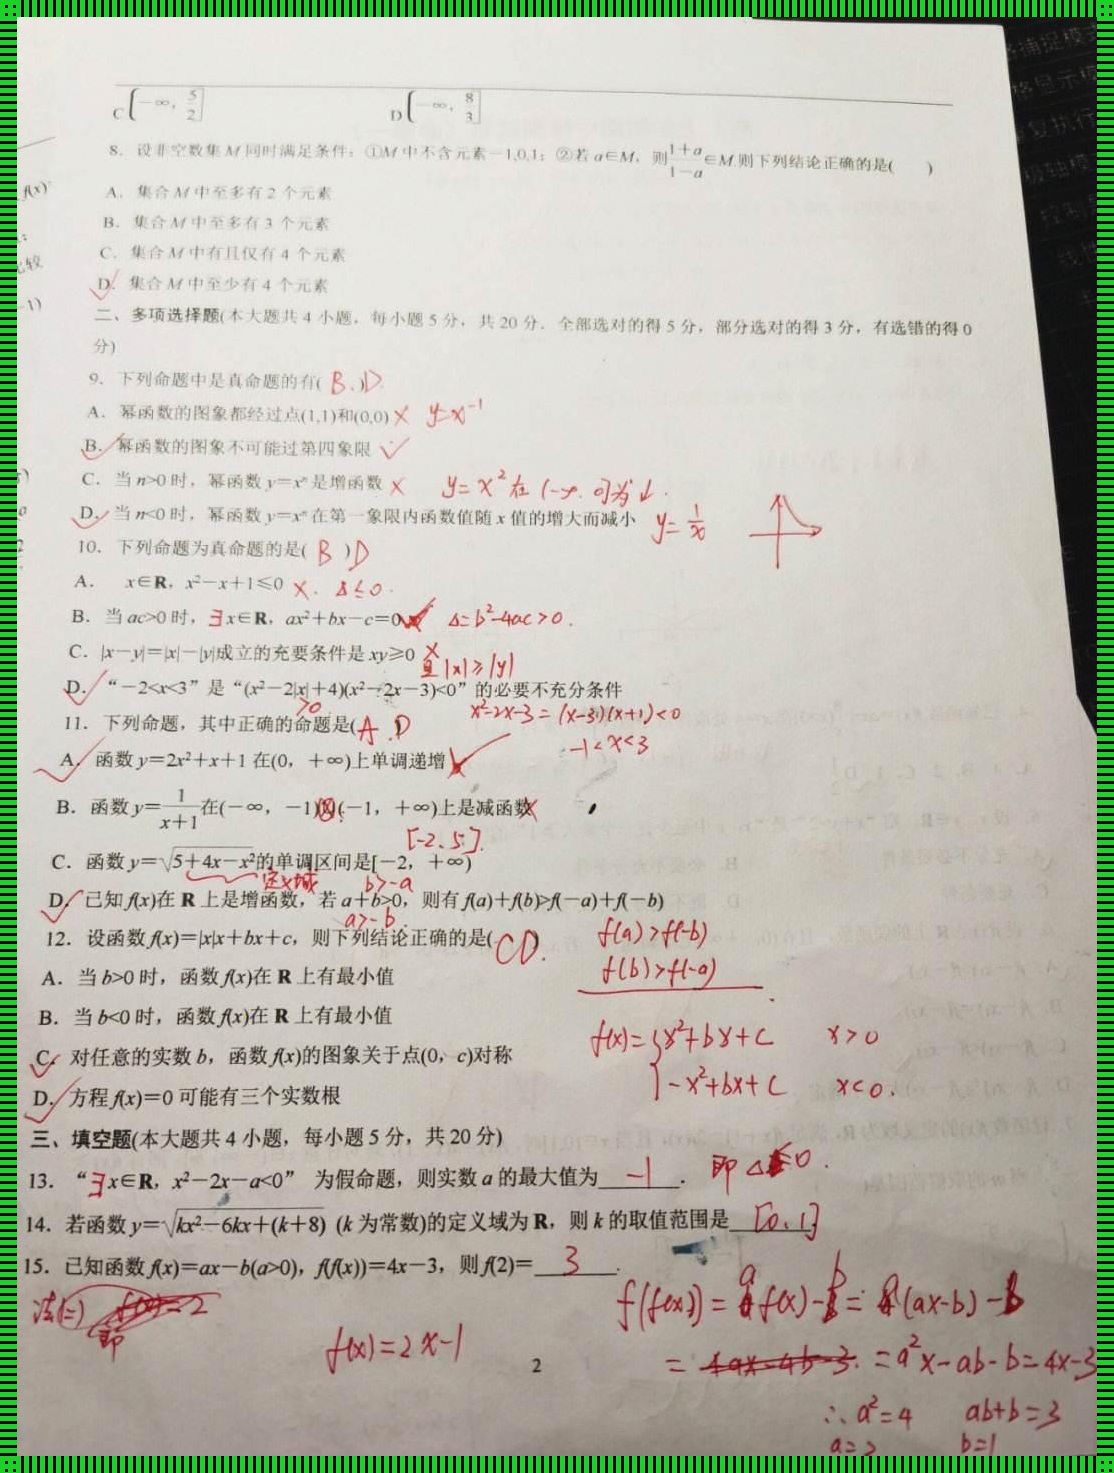 C (-∞, 5/2]    D (-∞, 8/3]
8. 设非空数集M同时满足条件:①M中不含元素-1,0,1;②若a∈M,则(1+a)/(1-a)∈M.则下列结论正确的是(  )
f(x)
A. 集合M中至多有2个元素
B. 集合M中至多有3个元素
C. 集合M中有且仅有4个元素
比较
D. 集合M中至少有4个元素
-1)
二、多项选择题(本大题共4小题,每小题5分,共20分.全部选对的得5分,部分选对的得3分,有选错的得0
分)
9. 下列命题中是真命题的有( B.)D
A. 幂函数的图象都经过点(1,1)和(0,0) × y=x⁻¹
B. 幂函数的图象不可能过第四象限 ✓
C. 当n>0时,幂函数y=xⁿ是增函数 × y=x²在(-∞.0]为↓.
D. 当n<0时,幂函数y=xⁿ在第一象限内函数值随x值的增大而减小 y=1/x
10. 下列命题为真命题的是( B )D
A. x∈R,x²-x+1≤0 ×. Δ≤0.
B. 当ac>0时,∃x∈R,ax²+bx-c=0 Δ=b²-4ac>0.
C. |x-y|=|x|-|y|成立的充要条件是xy≥0 × 且|x|≥|y|
D. “-2<x<3”是“(x²-2|x|+4)(x²-2x-3)<0”的必要不充分条件
>0 x²-2x-3=(x-3)(x+1)<0
11. 下列命题,其中正确的命题是( A.D
-1<x<3
A. 函数y=2x²+x+1在(0,+∞)上单调递增
B. 函数y=1/(x+1)在(-∞,-1)∪(-1,+∞)上是减函数×
[-2,5].
C. 函数y=√(5+4x-x²)的单调区间是[-2,+∞)
定义域 b>-a
D. 已知f(x)在R上是增函数,若a+b>0,则有f(a)+f(b)>f(-a)+f(-b)
a>-b
12. 设函数f(x)=|x|x+bx+c,则下列结论正确的是( CD ). f(a)>f(-b)
f(b)>f(-a)
A. 当b>0时,函数f(x)在R上有最小值
B. 当b<0时,函数f(x)在R上有最小值
f(x)={x²+bx+c x>0
C. 对任意的实数b,函数f(x)的图象关于点(0,c)对称
-x²+bx+c x<0.
D. 方程f(x)=0可能有三个实数根
三、填空题(本大题共4小题,每小题5分,共20分)
13. “∃x∈R,x²-2x-a<0” 为假命题,则实数a的最大值为 -1 . 即Δ≤0.
14. 若函数y=√(kx²-6kx+(k+8)) (k为常数)的定义域为R,则k的取值范围是 [0.1]
15. 已知函数f(x)=ax-b(a>0),f(f(x))=4x-3,则f(2)= 3 .
法(二) f(x)=2
即
f(f(x))=af(x)-b=a(ax-b)-b
f(x)=2x-1
=4ax-4b-3.=a²x-ab-b=4x-3
2
∴a²=4 ab+b=3
a=2 b=1